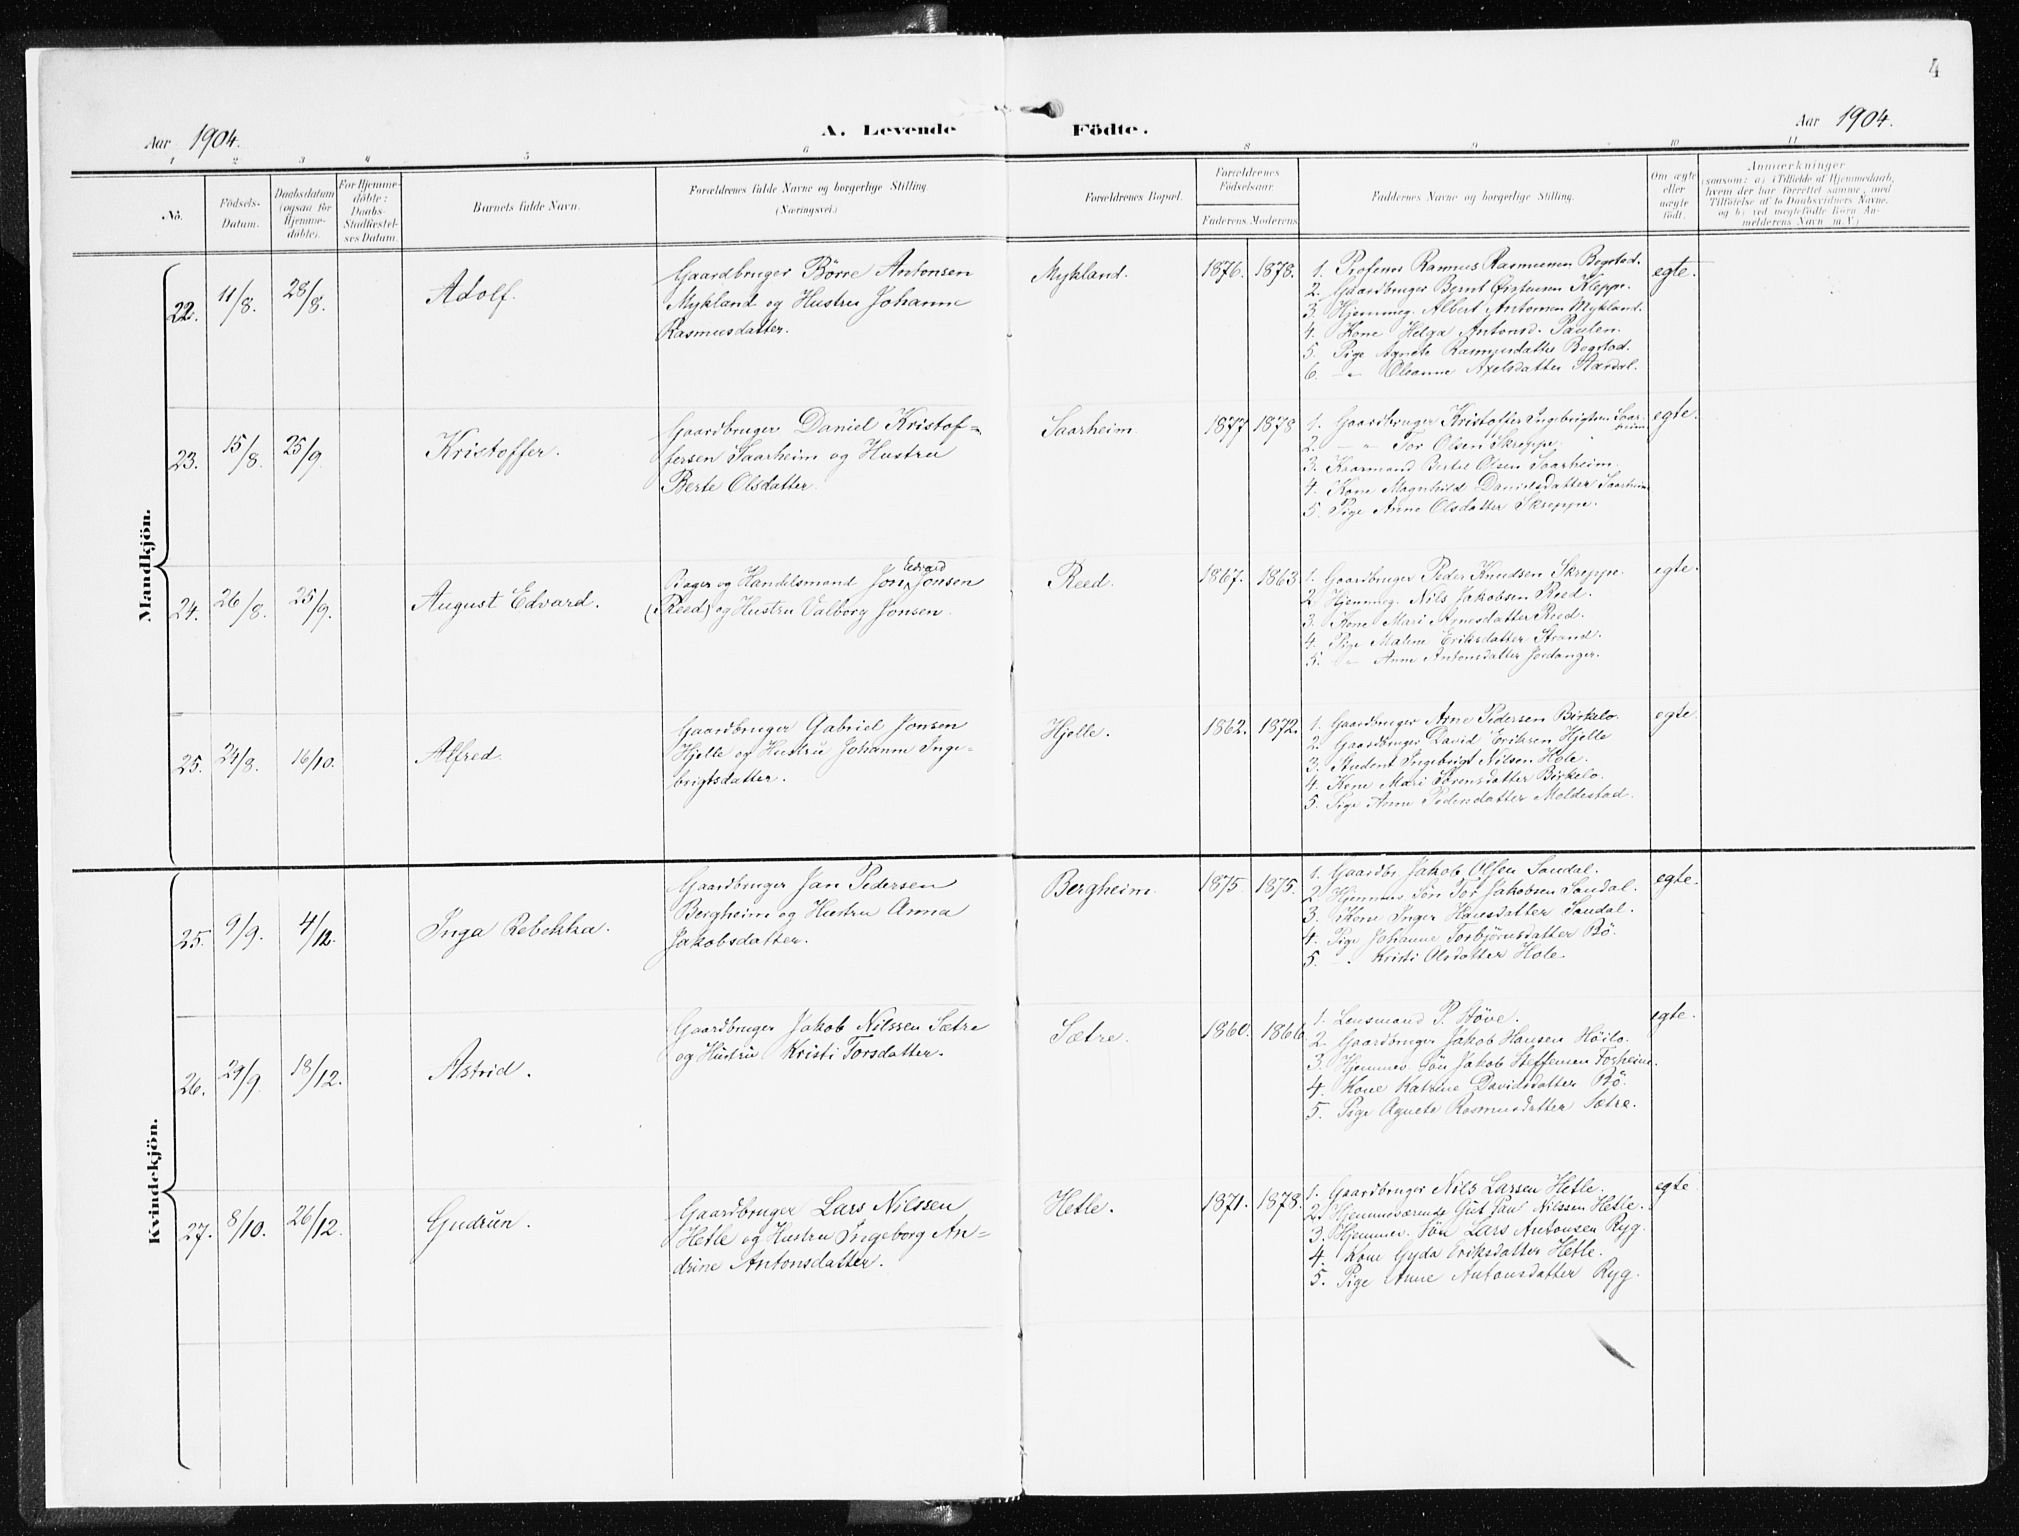 4
Aar 1904.
A. Levende Födte.
Aar 1904.
1 2 3 4 5 6 8 9 10 11
No.
Födsels-
Datum.
Daabsdatum
(ogsaa for
Hjemme-
döbte).
For Hjemme-
döbte:
Daabs-
Stadfæstel-
ses Datum.
Barnets fulde Navn.
Forældrenes fulde Navne og borgerlige Stilling
(Næringsvei.)
Forældrenes Bopæl.
Forældrenes
Födselsaar.
Faderens Moderens
Faddernes Navne og borgerlige Stilling.
Om ægte
eller
uægte
födt.
Anmærkninger
(saasom: a) i Tilfælde af Hjemmedaab,
hvem der har forrettet samme, med
Tilföielse af to Daabsvidners Navne.
og b) ved uægtefödte Börn An-
melderens Navn m.V.)
Mandkjön.
22. 11/8. 28/8. Adolf.
Gaardbruger Börre Antonsen
Mykland og Hustru Johanne
Rasmusdatter.
Mykland. 1876. 1878.
1. Rasmus Rasmussen Bogstad.
2. Gaardbruger Bernt Øistensen Kleppe.
3. Hjemmeg. Albert Antonsen Mykland.
4. Kone Helga Antonsd. Paulen.
5. Pige Agnete Rasmusdatter Bogstad.
6. —"— Oleanne Axelsdatter Aardal.
egte.
23. 15/8. 25/9. Kristoffer.
Gaardbruger Daniel Kristof=
fersen Saarheim og Hustru
Berte Olsdatter.
Saarheim. 1877 1878
1. Gaardbruger Kristoffer Ingebrigtsen Saar-
heim
2. —"— Tor Olsen Skreppe.
3. Kaarmand Bertel Olsen Saarheim.
4. Kone Magnhild Danielsdatter Saarheim
5. Pige Anne Olsdatter Skreppe.
egte.
24. 26/8. 25/9. August Edvard.
Bager og Handelsmand Jon Edvard Jonsen
(Reed) og Hustru Valborg Jonsen.
Reed. 1867. 1863.
1. Gaardbruger Peder Knudsen Skreppe.
2. Hjemmeg. Nils Jakobsen Reed.
3. Kone Mari Arnesdatter Reed.
4. Pige Malene Eriksdatter Strand.
5. —"— Anne Antonsdatter Jordanger.
egte.
25. 24/8. 16/10. Alfred.
Gaardbruger Gabriel Jonsen
Hjelle og Hustru Johanne Inge-
brigtsdatter.
Hjelle. 1862. 1872.
1. Gaardbruger Arne Pedersen Birkelo.
2. Gaardbruger David Eriksen Hjelle
3. Student Ingebrigt Nilsen Hole.
4. Kone Mari Sörensdatter Birkelo.
5. Pige Anne Pedersdatter Moldestad.
egte.
Kvindekjön.
25. 9/9. 4/12. Inga Rebekka.
Gaardbruger Jan Pedersen
Bergheim og Hustru Anna
Jakobsdatter.
Bergheim. 1875. 1875.
1. Gaardbr Jakob Olsen Sandal.
2. Hjemmev Søn Tor Jakobsen Sandal.
3. Kone Inger Hansdatter Sandal.
4. Pige Johanne Torbjörnsdatter Bö.
5. —"— Kristi Olsdatter Hole.
egte.
26. 24/9. 18/12. Astrid.
Gaardbruger Jakob Nilssen Sætre
og Hustru Kristi Torsdatter.
Sætre. 1860. 1866.
1. Lensmand P. Støve.
2. Gaardbruger Jakob Hansen Höilo.
3. Hjemmev. Søn Jakob Steffensen Forheim.
4. Kone Katrine Davidsdatter Bö.
5. Pige Agnete Rasmusdatter Sætre.
egte.
27. 8/10. 26/12. Gudrun.
Gaardbruger Lars Nilssen
Hetle og Hustru Ingeborg An=
drine Antonsdatter.
Hetle. 1871. 1878.
1. Gaardbruger Nils Larsen Hetle.
2. Hjemmeværende Gut Paul Nilssen Hetle.
3. Hjemmev. Søn Lars Antonsen Ryg.
4. Kone Gyda Eriksdatter Hetle.
5. Pige Anne Antonsdatter Ryg.
egte